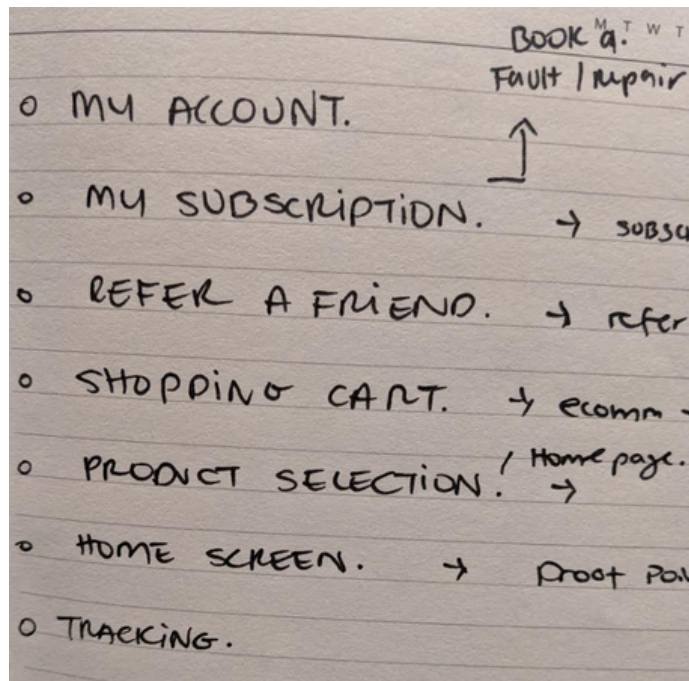 M T W T
BOOK a.
Fault / repair
o MY ACCOUNT.
o MY SUBSCRIPTION. → SUBSC
o REFER A FRIEND. → refer
o SHOPPING CART. → ecomm -
o PRODUCT SELECTION. / Home page. →
o HOME SCREEN. → Proof
o TRACKING.